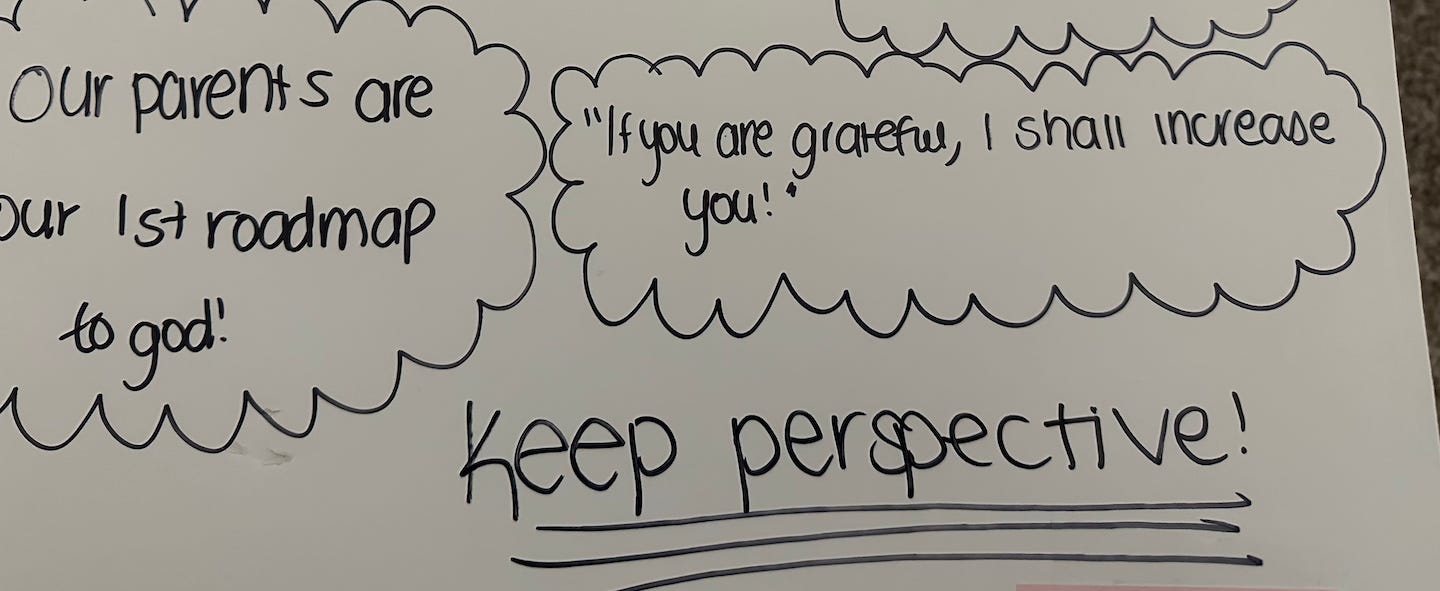 Our parents are
our 1st roadmap
to god!
"If you are grateful, I shall increase
you!"
Keep perspective!